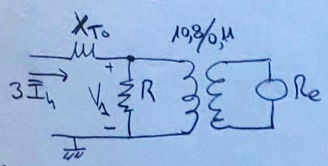 X_T0
10,8/0,4
3 I_4
+
V_1
R
Re
-